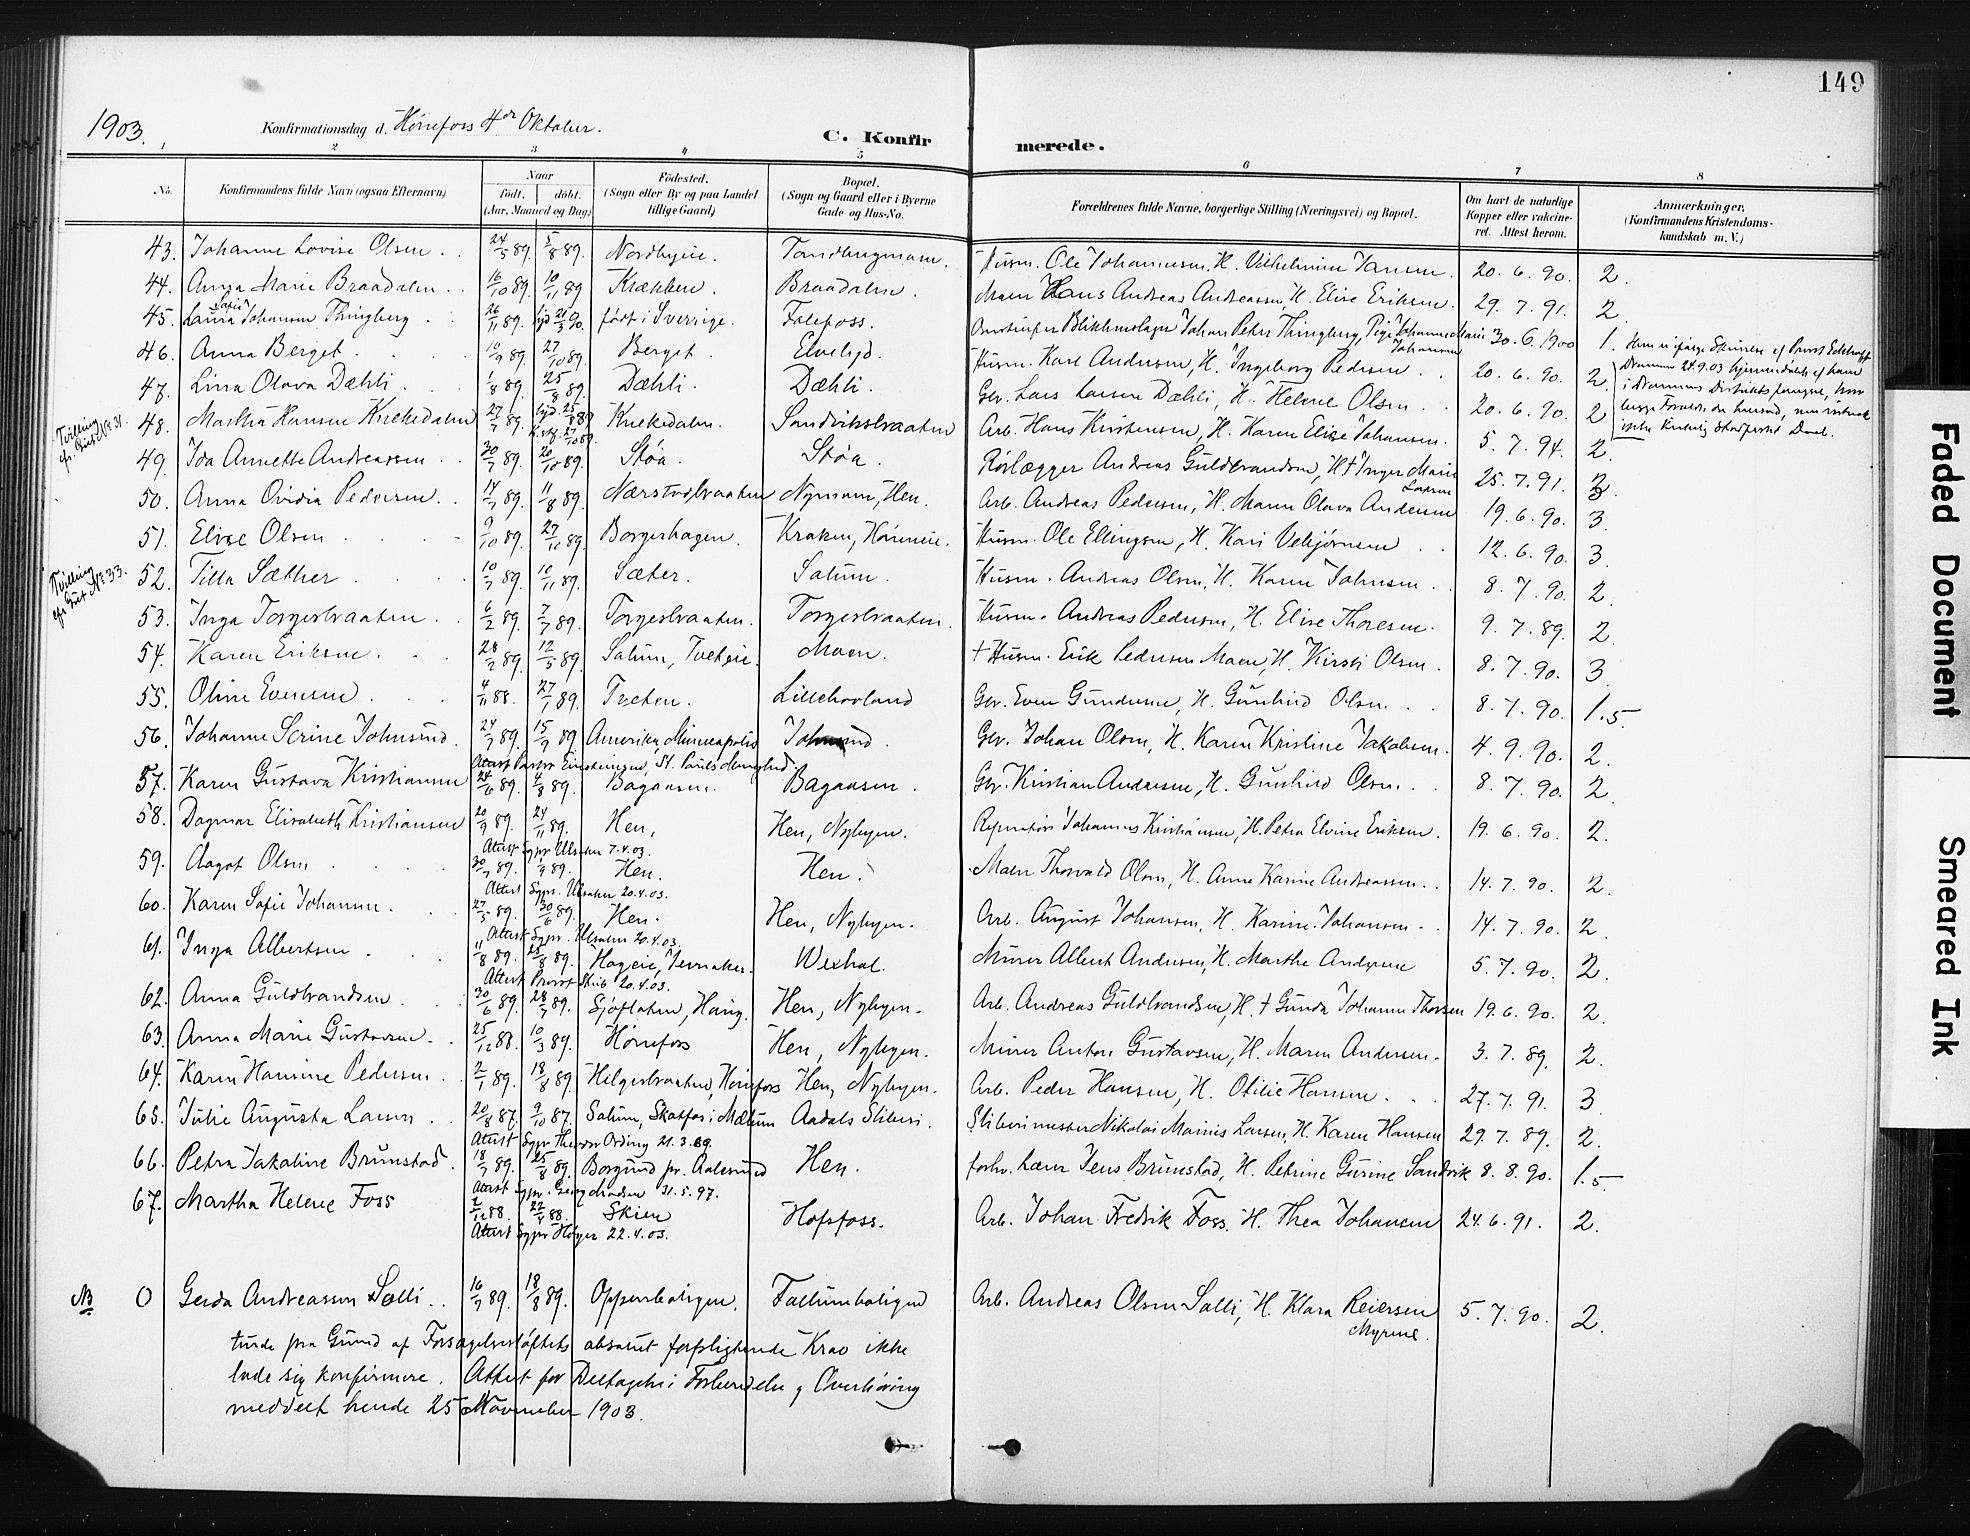 149
1903. Konfirmationsdag d. Hønefoss 4de Oktober.
C. Konfirmerede.
2 3 4 5 6 7 8
No. Konfirmandens fulde Navn (ogsaa Efternavn) Naar født. døbt. (Aar, Maaned og Dag) Fødested. (Sogn eller By og paa Landet tillige Gaard) Bopæl. (Sogn og Gaard eller i Byerne Gade og Hus-No. Forældrenes fulde Navne, borgerlige Stilling (Næringsvei) og Bopæl. Om havt de naturlige Kopper eller vakcineret. Attest herom. Anmærkninger. (Konfirmandens Kristendomskundskab m. V.)
43. Johanne Lovise Olsen 24/5 89. 5/8 89. Nordbyeie. Husm. Ole Johannesen, H. Vilhelmine Jansen. 20.6.90. 2.
44. Anna Marie Braadalen 16/10 89. 10/11 89 Krækken. Braadalen. Maler Hans Andreas Andreassen, H. Elise Eriksen. 29.7.91. 2.
45. Laura Sofie Johansen Thingberg 26/11 89. født i Sverrige. Follfoss. Blikkenslager Johan Peter Thingberg, Pige Johanne Marie Johansen 30.6.1900 1.
46. Anna Berget 10/9 89. 27/10 89. Berget. Elvebyd. Husm. Karl Andersen, H. Ingeborg Pedersen. 20.6.90. 2.
47. Lina Olava Dæhli 1/8 89. 25/8 89. Dæhli. Dæhli. Gbr. Lars Larsen Dæhli, H. Helene Olsen. 20.6.90. 2
Tvilling cfr. Gut No 31.
48. Martha Hansen Knekedalen 27/7 89. Knekedalen. Sandviksbraaten Arb. Hans Kristensen, H. Karen Elise Johansen. 5.7.94. 2.
49. Ida Annette Andreassen 30/7 89. 20/10 89. Støa. Støa. Rørlægger Andreas Guldbrandsen, H. † Inger Marie Larsen 25.7.91. 2
50. Anna Ovidia Pedersen 14/7 89. 11/8 89. Nærstedbraaten Nymoen, Hen. Arb. Andreas Pedersen, H. Maren Olava Andersen 19.6.90. 3.
51. Elise Olsen 9/10 89. 27/10 89. Borgerhagen. Kraken, Hønneie. Husm. Ole Ellingsen, H. Kari Vebjørnsen 12.6.90. 3.
Tvilling cfr Gut No 33.
52. Tilla Sæther 10/7 89. 10/11 89. Sæter. Solum. Husm. Andreas Olsen, H. Karen Johnsen 8.7.90. 2.
53. Inga Torgersbraaten 6/2 89. 7/7 89. Torgersbraaten. Torgersbraaten. Husm. Andreas Pedersen, H. Elise Thoresen. 9.7.89. 2.
54. Karen Eriksen 28/2 89. 12/5 89. Solum, Tveteie. Moen. † Husm. Erik Pedersen Moen, H. Kirsti Olsen. 8.7.90. 3.
55. Oline Evensen 4/11 88. 27/1 89. Tveten. Lillehovland Gbr. Even Gundersen, H. Gunhild Olsen 8.7.90. 1.5
56. Johanne Serine Johnsrud 24/7 89. 15/9 89. Amerika, Minneapolis Johnsrud. Gbr. Johan Olsen, H. Karen Kristine Jakobsen. 4.9.90. 2.
57. Karen Gustava Kristiansen 24/6 89. 4/8 89. Bagaasen. Bagaasen. Gbr. Kristian Andersen, H. Gunhild Olsen. 8.7.90. 2.
58. Dagmar Elisabeth Kristiansen 20/9 89. 24/11 89. Hen. Hen, Nybyen. Reparatør Johannes Kristiansen, H. Petra Elvine Eriksen. 19.6.90. 2.
Attest Sgpr Ulsaker 7.4.03.
59. Aagot Olsen Hen. Hen. Maler Thorvald Olsen, H. Anne Karine Andreassen. 14.7.90. 2.
Attest Sgpr. Ulsaker 20.4.03.
60. Karen Sofie Johansen. 27/5 89. 30/6 89. Hen. Hen, Nybyen. Arb. August Johansen, H. Karine Johansen. 14.7.90. 2.
Attest Sgpr. Ulsaker 20.4.03.
61. Inga Albertsen 11/8 89. 25/8 89. Hageie, Jevnaker. Wexhal. Murer Albert Andersen, H. Marthe Andersen 5.7.90. 2.
Attest Provst Skib 20.4.03.
62. Anna Guldbrandsen 30/6 89. 28/7 89. Sjøflaten, Haug. Hen, Nybyen. Arb. Andreas Guldbrandsen, H. † Gunda Johanne Thorsen 19.6.90. 2.
63. Anna Marie Gustavsen. 25/12 88. 10/3 89. Hønefoss Hen, Nybyen. Murer Anton Gustavsen, H. Maren Andersen. 3.7.89. 2.
64. Karen Hansine Pedersen 2/1 89. 18/8 89. Helgesbraaten, Hønefoss Hen, Nybyen. Arb. Peder Hansen, H. Otilie Hansen. 27.7.91. 3.
65. Julie Augusta Larsen 20/8 87. 9/10 87. Solum, Skotfos i Mælum Aadals Sliberi. Slibermester Nikolai Mainis Larsen, H. Karen Hansen 29.7.89. 2.
Attest Sgpr Theodor Ording 21.3.89.
66. Petra Jakobine Brunstad. 18/7 89. 25/8 89. Borgund pr. Aalesund Hen. forhv. Lærer Jens Brunstad, H. Petrine Gurine Sandvik 8.8.90. 1.5
Attest Sgpr. Georg Madsen 31.5.97.
67. Martha Helene Foss 2/12 88. 22/4 88. Skien Hofsfoss. Arb. Johan Fredrik Foss, H. Thea Johansen 24.6.91. 2.
Attest Sgpr Høyer 22.4.03.
NB O Gerda Andreassen Solli 16/7 89. 18/8 89. Oppenboligen. Follumboligen Arb. Andreas Olsen Solli, H. Klara Reiersen Myrene. 5.7.90. 2.
turde paa Grund af Forsagelsesløftets absolut forpligtende Krav ikke
lade sig konfirmere. Attest for Deltagelse i Forberedelse og Overhøring
meddelt hende 25 November 1903.
Faded Document
Smeared Ink